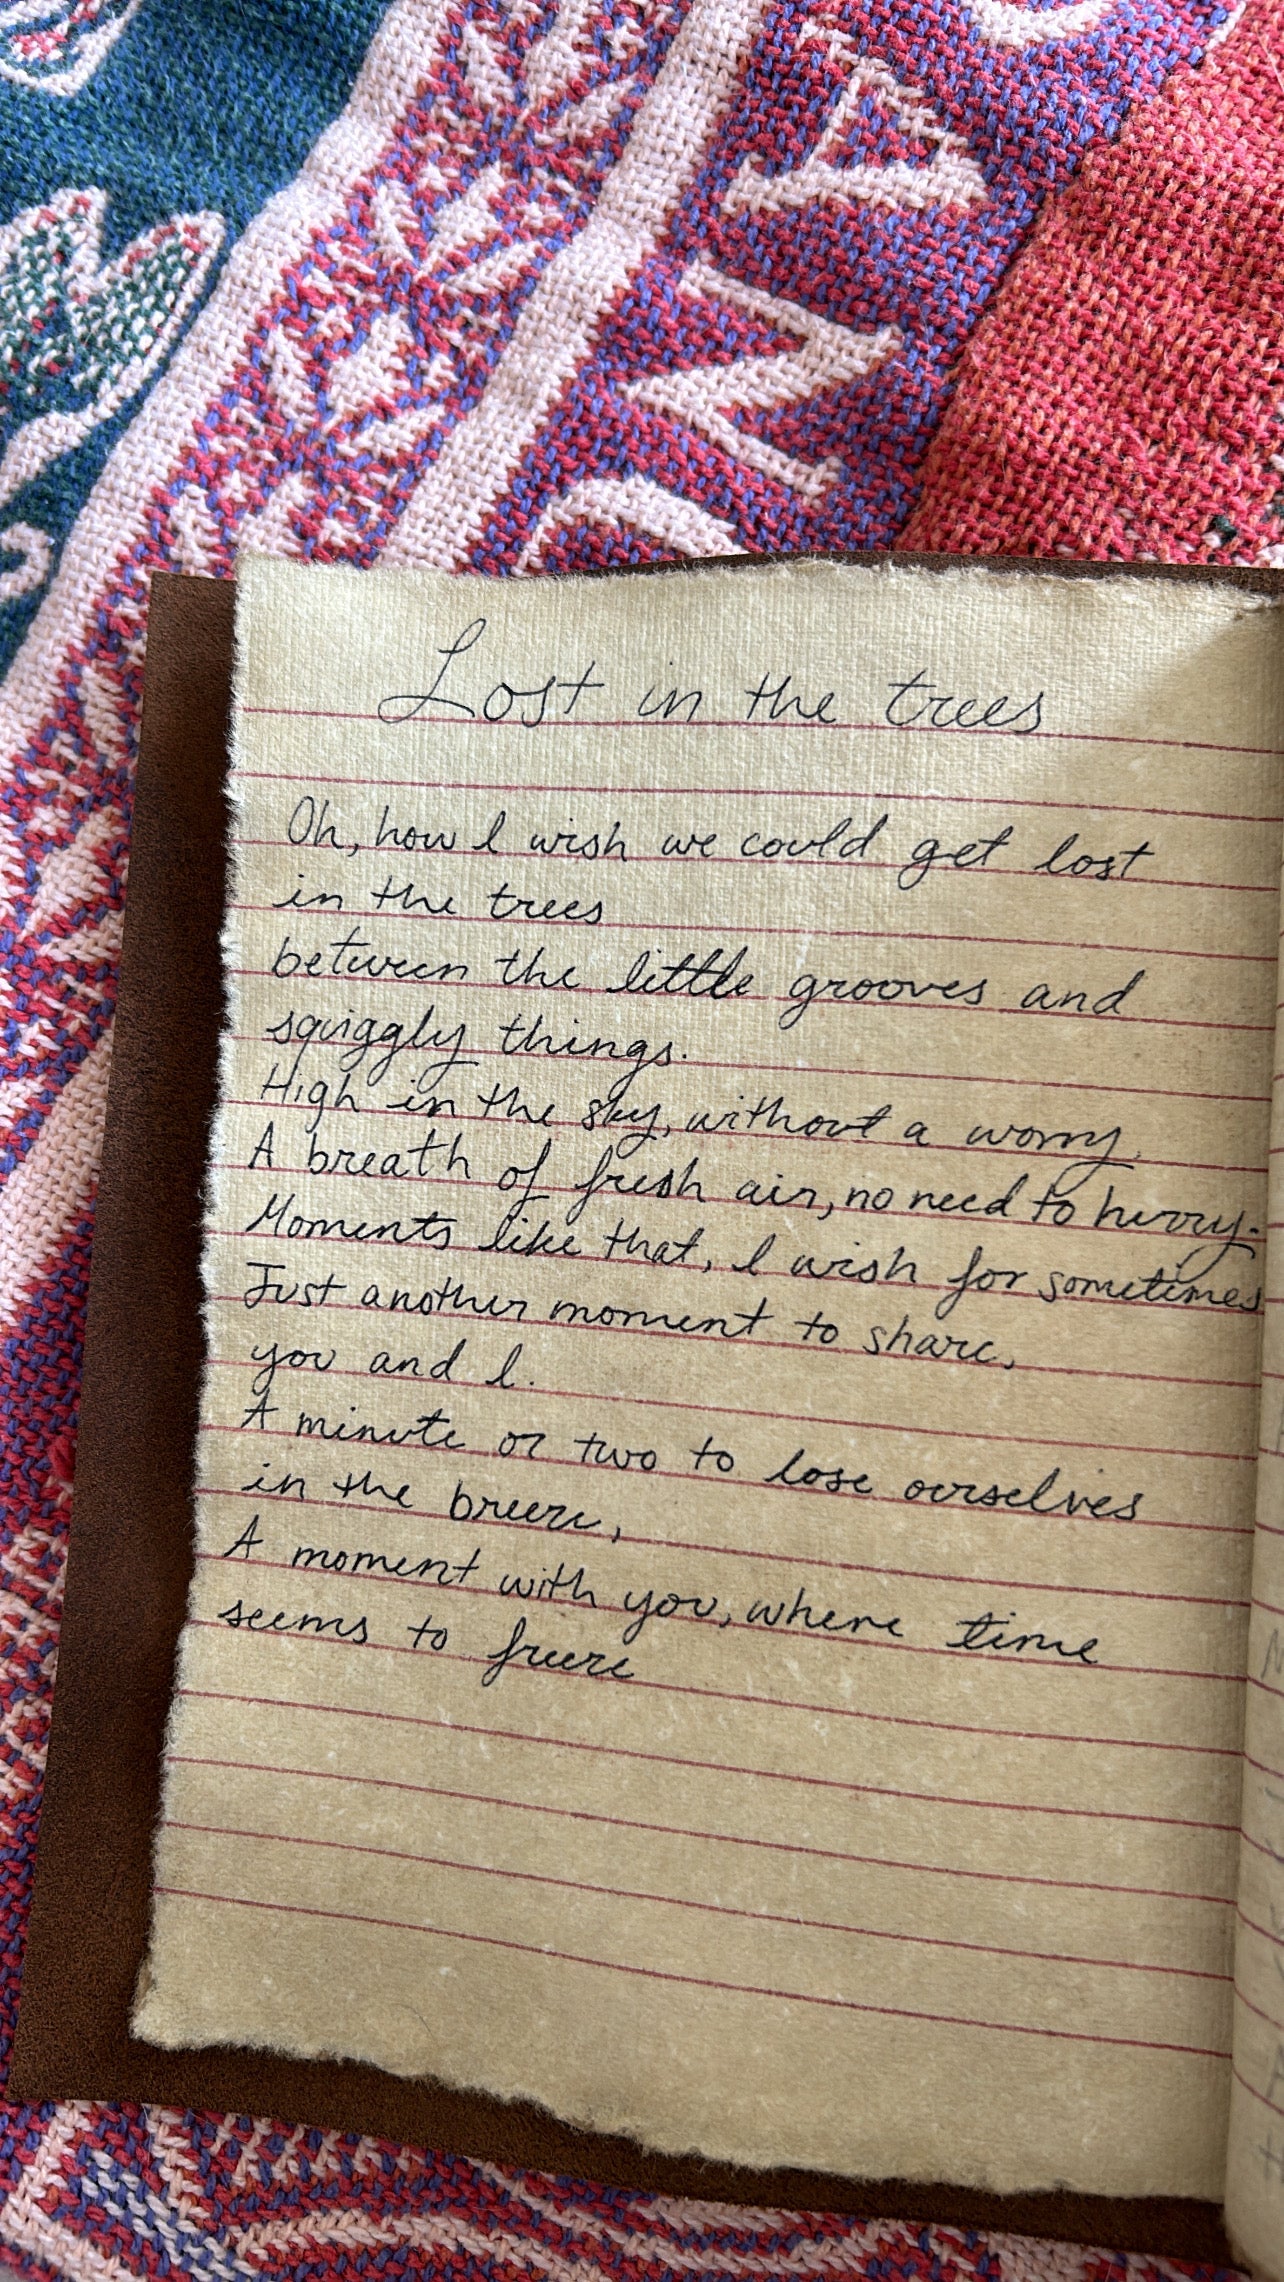 Lost in the trees
Oh, how I wish we could get lost
in the trees
between the little grooves and
squiggly things.
High in the sky, without a worry.
A breath of fresh air, no need to hurry.
Moments like that, I wish for sometimes
Just another moment to share,
you and I.
A minute or two to lose ourselves
in the breeze,
A moment with you, where time
seems to freeze